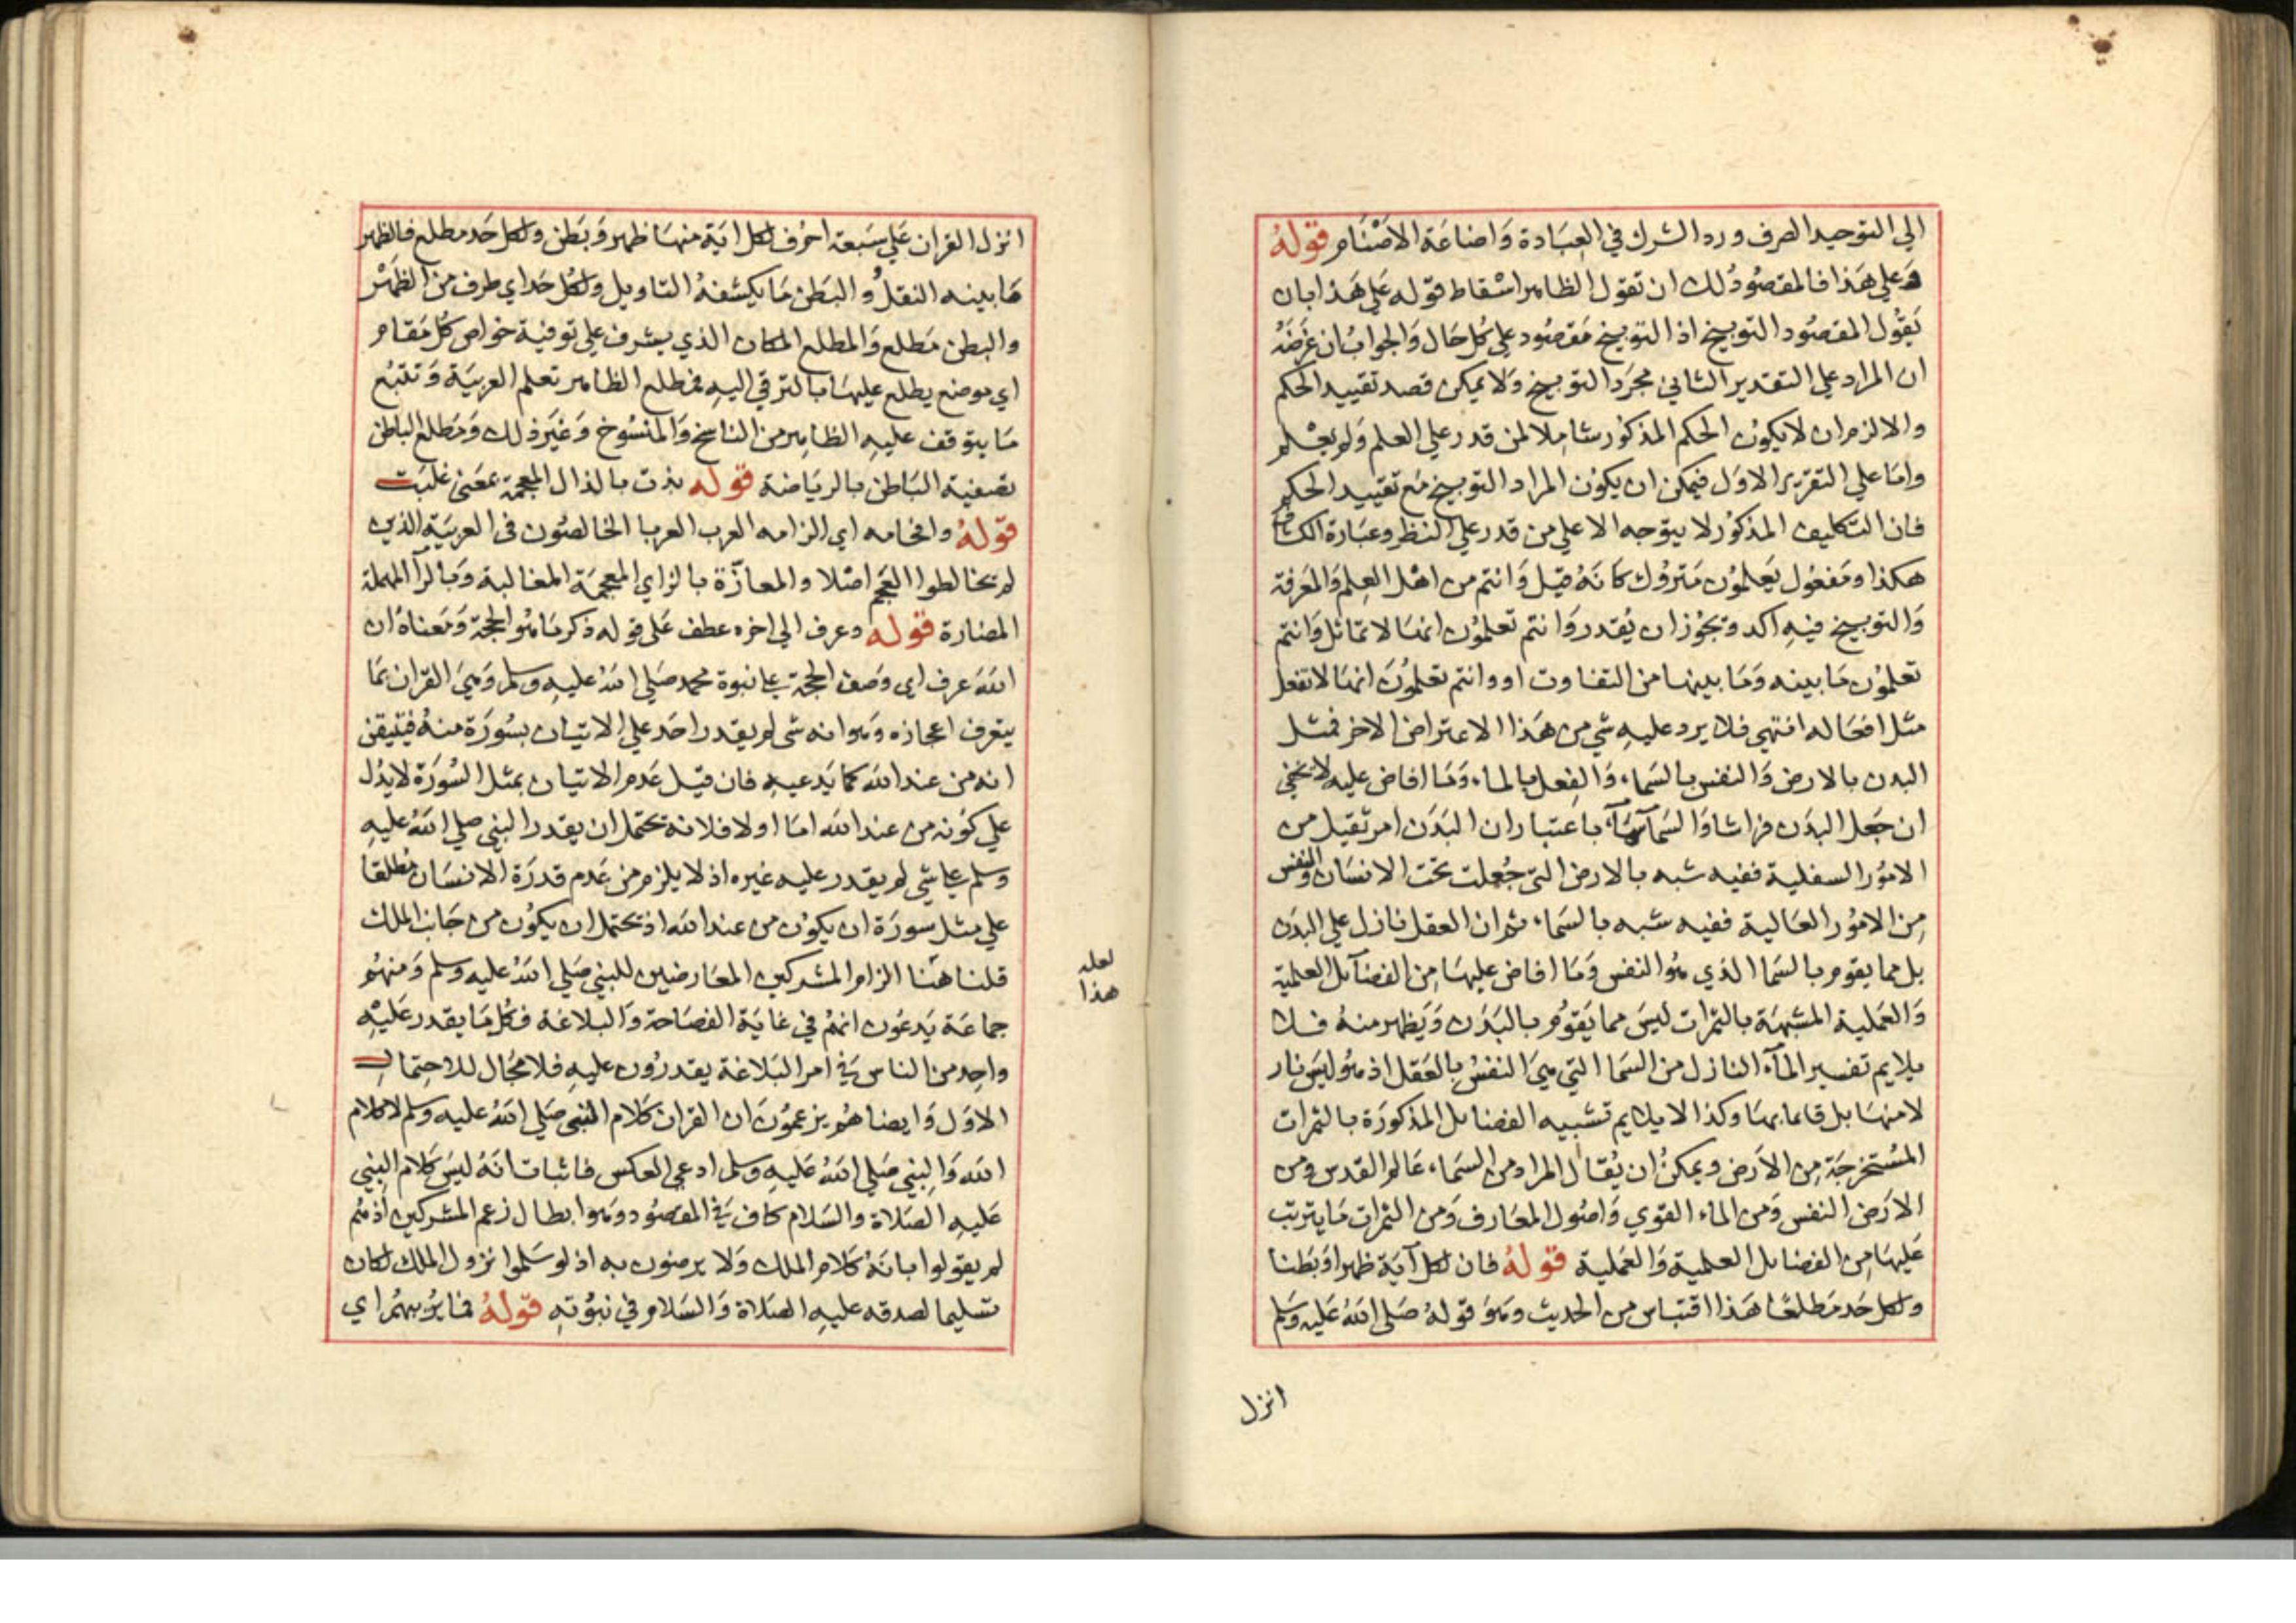 الي التوحيد الصرف ورد الشرك في العبَادة وَاضاعَة الاصْنَام قولهُ
وَعلي هَذا فالمقصُود لك ان تقول الظاهر اسْقاط قوله عَلي هَذا بان
يَقُول المقصُود التوبيخ اذ التوبيخ مَقصُود علي كل حَال وَالجوابُ ان غرَضَهُ
ان المراد علي التقدير الثاني مجرَد التوبيخ وَلا يمكن قصد تقييد الحكم
والا لزم ان لا يكون الحكم المذكور شاملا لمن قدر علي العلم وَلم يعْلم
وامَا علي التقرير الاوَل فيمكن ان يكون المراد التوبيخ مَع تقييد الحكم
فان التكليف المذكوُر لا يتوجه الا علي من قدر علي النظر وعبَارة الكشاف
هكذا ومَفعُول يَعلمُون مَتروُك كانَهُ قيل وَانتم من اهْل العِلم وَالمَعرفة
وَالتوبيخ فيهِ اكد وَيجُوز ان يُقدر وَانتم تعلمُون انهَا لا تماثل وَانتم
تعلمُون مَا بينه وَمَا بينها من التفاوت او وانتم تعلمُونَ انهَا لا تفعل
مثل افعَاله انتهي فلا يرد عليهِ شي من هَذا الاعتراض الاخر فمثل
البدن بالارض وَالنفس بالسَماء وَالفعل بالماء وَمَا افاض عليه لا يخفي
ان جَعل البدَن فراشا وَالسَمآ سمَآء باعتبار ان البَدَن امر ثقيل من
الامُور السفلية ففيه شبه بالارض التي جُعلت تحت الانسَان والنفس
مِن الامُور العَالية ففيه شبه بالسَماء ثم ان العقل نازل علي البدَن
بل مما يقوم بالسَما الذي هُو النفس وَمَا افاض عليهَا مِن الفضآئل العلمية
وَالعَملية المشبهَة بالثمرات ليسَ مما يَقوُم بالبَدَن وَيَظهر منهُ فلا
يلايم تفسير المآء النازل من السَما التي هيَ النفسُ بالعَقل اذ هُو ليسَ نازلا
لا منهَا بل قاما بهَا وكذا لا يلايم تشبيه الفضائل المذكورَة بالثمرات
المسُتخرجَة مِن الاَرض وَيمكنُ ان يُقال المراد من السَماء عَالم القدس ومن
الارَض النفس وَمن الماء القوي وَاصُول المعَارف وَمن الثمرات مَا يترتب
عَليهَا مِن الفضائل العلمية وَالعَملية قولهُ فان لكل آيَة ظهرا وَبَطنا
ولكل حَد مَطلعًا هَذا اقتباس من الحديث وهوَ قولهُ صَلي اللهُ عَليهِ وَسَلم
انزل
انزل القران عَلي سَبعة احرُف لكل ايَة منهَا ظهر وَبَطن ولكل حَد مطلع فالظهر
مَا بينه النقلُ وَالبَطن مَا يكشفهُ التاويل ولكل حَد اي طرف من الظَهْر
والبطن مَطلع وَالمطلع المكان الذي يشرف علي توفية خواص كل مَقام
اي موضع يطلع عليهَا بالترقي اليهِ فمطلع الظاهر تعلم العربيَة وَتتبُع
مَا يتوقف عليهِ الظاهِر من الناسخ وَالمنسُوخ وَغيَر ذلك وَمَطلع الباطن
تصفية البَاطن بالريَاضة قوله بذت بالذال المعجمة بمعَني غلبَت
قولهُ وافحامه اي الزامه العرب العربا الخالصُون في العربيَة الذين
لم يخالطوا العَجم اصْلا والمعازّة بالزاي المعجمَة المغالبة وَبالرآ المهملة
المضارة قوله وعرف الي اخره عطف عَلي قوله ذكر مَا هُو الحجة وَمَعناهُ ان
اللهَ عرف اي وَصف الحجة علي نبوة محمد صَلي اللهُ عليهِ وسلم وَهيَ القران بمَا
يتعرف اعجازه وَهوا نه شي لم يقدر احَد علي الاتيان بسُورَة منهُ فيتيقن
انه من عند الله كما يَدعيهِ فان قيل عَدم الاتيان بمثل السُورَة لا يدُل
علي كوَنه من عند الله امَا اولا فلانه يحتمل ان يقدر النبي صلي اللهُ عليهِ
وسلم علي شي لم يقدر عليه غيره اذ لا يلزم من عَدم قدرَة الانسَان مُطلقا
علي مثل سورَة ان يكوُن من عند الله اذ يحتمل ان يكوُن من جَانب الملك
قلنا هَنا الزام المشركين المعَارضين للنبي صَلي اللهُ عليهِ وسلم وَمنهُم
لعله
هذا
جماعَة يَدعُون انهُم في غايَة الفصَاحة وَالبلاغة فكُل مَا يقدر عَليْهِ
واحِد من الناس في امر البَلاغة يقدرُون عليهِ فلا مجَال للاحِتمال
الاوَل وَايضا هُم يزعمُونَ ان القران كَلام النبي صَلي اللهُ عليه وسلم لا كلام
الله وَالنبي صَلي اللهُ عَليهِ وسلم ادعي العكس فاثبات انَهُ ليسَ كَلام النبي
عَليهِ الصَلاة والسَلام كاف في المقصُود وَهوا بطال زعم المشركين اذ هُم
لم يقولوا بانَهُ كَلام الملك وَلا يرضون به اذ لو سَلموا نزول الملك لكان
تسليما لصدقه عليهِ الصَلاة وَالسَلام في نبوُتهِ قولهُ فما يُوبهُم اي